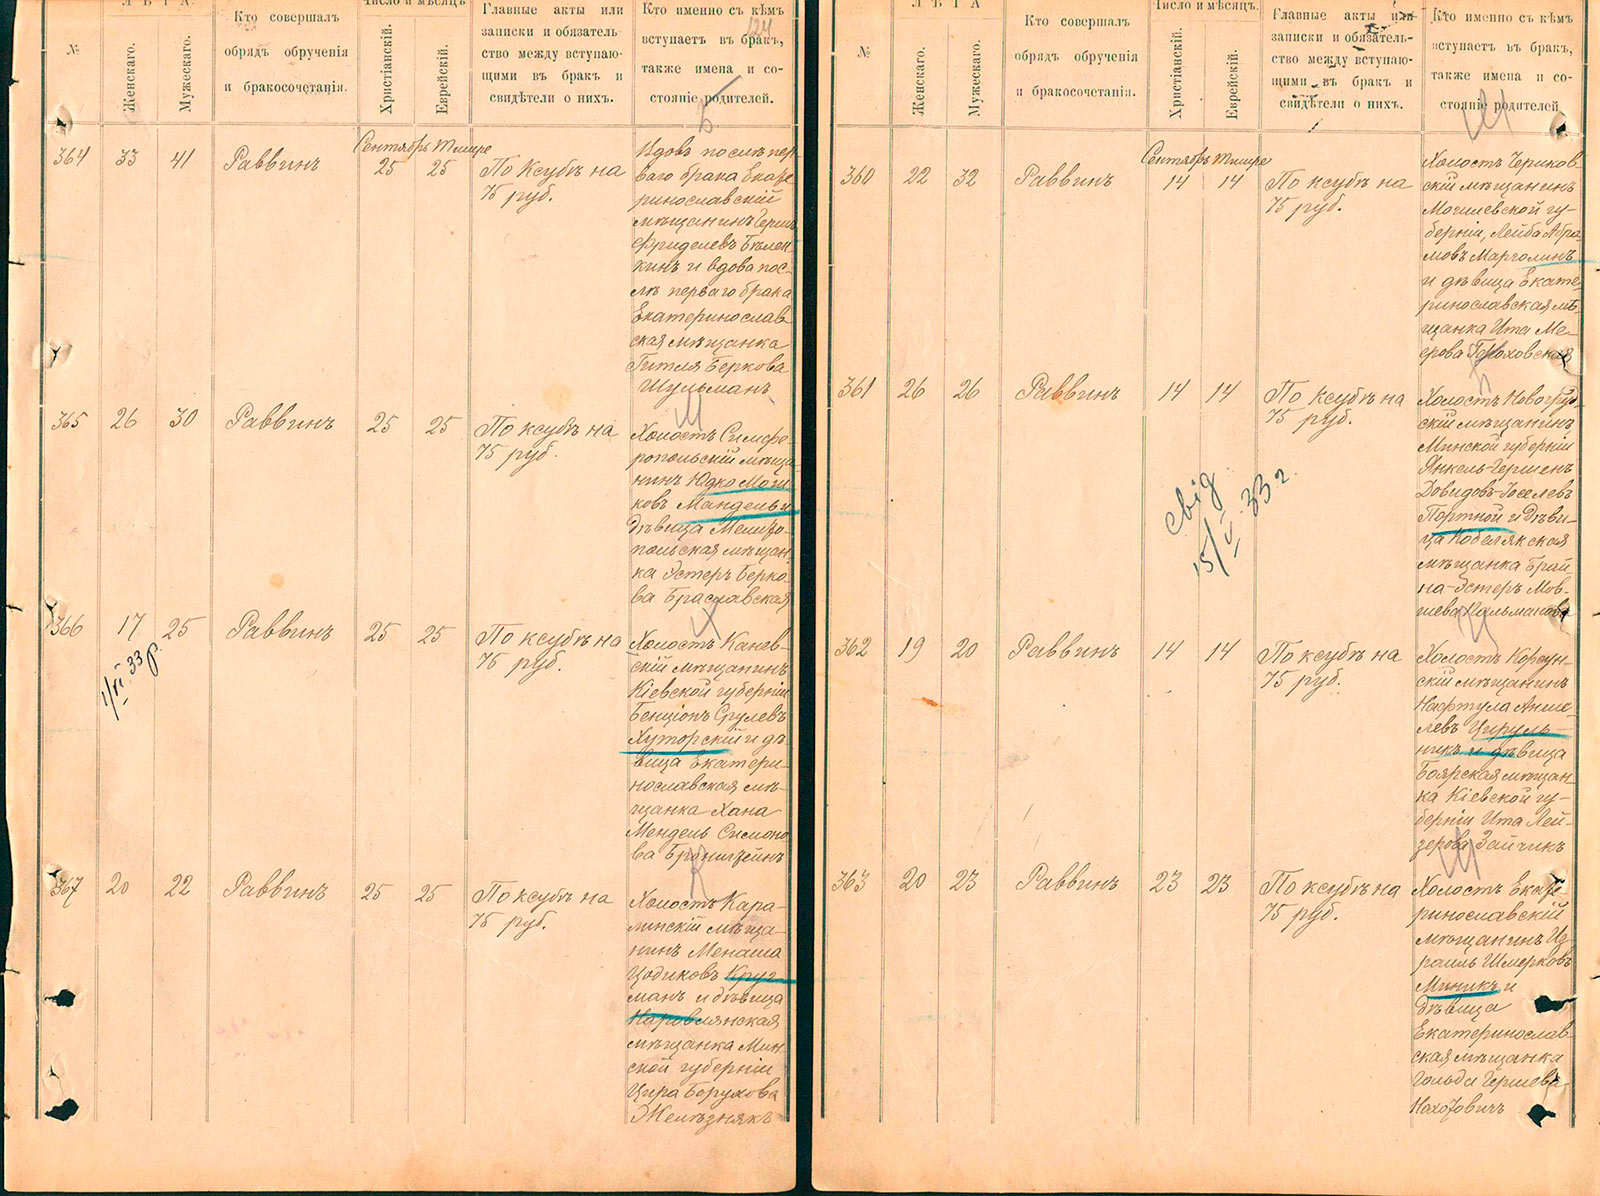 ЛѢТА
Число и мѣсяцъ
№
Женскаго.
Мужескаго.
Кто совершалъ
обрядъ обрученія
и бракосочетанія.
Христіанскій.
Еврейскій.
Главные акты или
записки и обязатель-
ство между вступаю-
щими въ бракъ и
свидѣтели о нихъ.
Кто именно съ кѣмъ
вступаетъ въ бракъ,
также имена и со-
стояніе родителей.
124
Б
364 33 41 Раввинъ
Сентябрь Тишре
25 25
По ксубѣ на
75 руб.
Вдовъ послѣ пер-
ваго брака Екате
ринославскій
мѣщанинъ Гершъ
Фриделевъ Бѣлен
кинъ и вдова пос-
лѣ перваго брака
Екатеринослав
ская мѣщанка
Гитля Беркова
Шульманъ
М
365 26 30 Раввинъ 25 25
По ксубѣ на
75 руб.
Холостъ Симфе-
ропольскій мѣща
нинъ Юдко
Мандель и
дѣвица Мелито-
польская мѣщан
ка Эстеръ Берко-
ва Браславская
Х
366 17 25 Раввинъ 25 25
По ксубѣ на
75 руб.
1/VI 33 р.
Холостъ Канев-
скій мѣщанинъ
Кіевской губерніи
Бенціонъ Срулевъ
Хуторскій и дѣ
вица Екатери-
нославская мѣ-
щанка Хана
Мендель Симоно-
ва Бронштейнъ
К
367 20 22 Раввинъ 25 25
По ксубѣ на
75 руб.
Холостъ Кара-
линскій мѣща-
нинъ Менаша
Цодиковъ Круг
манъ и дѣвица
Наровлянская
мѣщанка Мин-
ской губерніи
Цира Борухова
Желѣзнякъ
ЛѢТА
Число и мѣсяцъ.
№
Женскаго.
Мужескаго.
Кто совершалъ
обрядъ обрученія
и бракосочетанія.
Христіанскій.
Еврейскій.
Главные акты или
записки и обязатель-
ство между вступаю-
щими въ бракъ и
свидѣтели о нихъ.
Кто именно съ кѣмъ
вступаетъ въ бракъ,
также имена и со-
стояніе родителей
М
360 22 32 Раввинъ
Сентябрь Тишре
14 14
По ксубѣ на
75 руб.
Холостъ Чериков
скій мѣщанинъ
Могилевской гу-
берніи, Лейба Абра
мовъ Марголинъ
и дѣвица Екате-
ринославская мѣ-
щанка Ита Ме-
ерова Гороховская
П
361 26 26 Раввинъ 14 14
По ксубѣ на
75 руб.
свід
15/V 33 г.
Холостъ Новогруд-
скій мѣщанинъ
Минской губерніи
Янкель-Гершенъ
Довидовъ-Іоселевъ
Портной и дѣви-
ца Кобелякская
мѣщанка Брай
на-Эстеръ Мов-
шева Кальманова
Ц
362 19 20 Раввинъ 14 14
По ксубѣ на
75 руб.
Холостъ Корсун-
скій мѣщанинъ
Нафтула Анше-
левъ Цируль-
никъ и дѣвица
Боярская мѣщан-
ка Кіевской гу-
берніи Ита Лей-
зерова Зайчикъ
М
363 20 23 Раввинъ 23 23
По ксубѣ на
75 руб.
Холостъ Екате-
ринославскій
мѣщанинъ Из
раиль Шмерковъ
Миникъ и
дѣвица
Екатеринослав-
ская мѣщанка
Гольда Гершева
Нахотовичъ